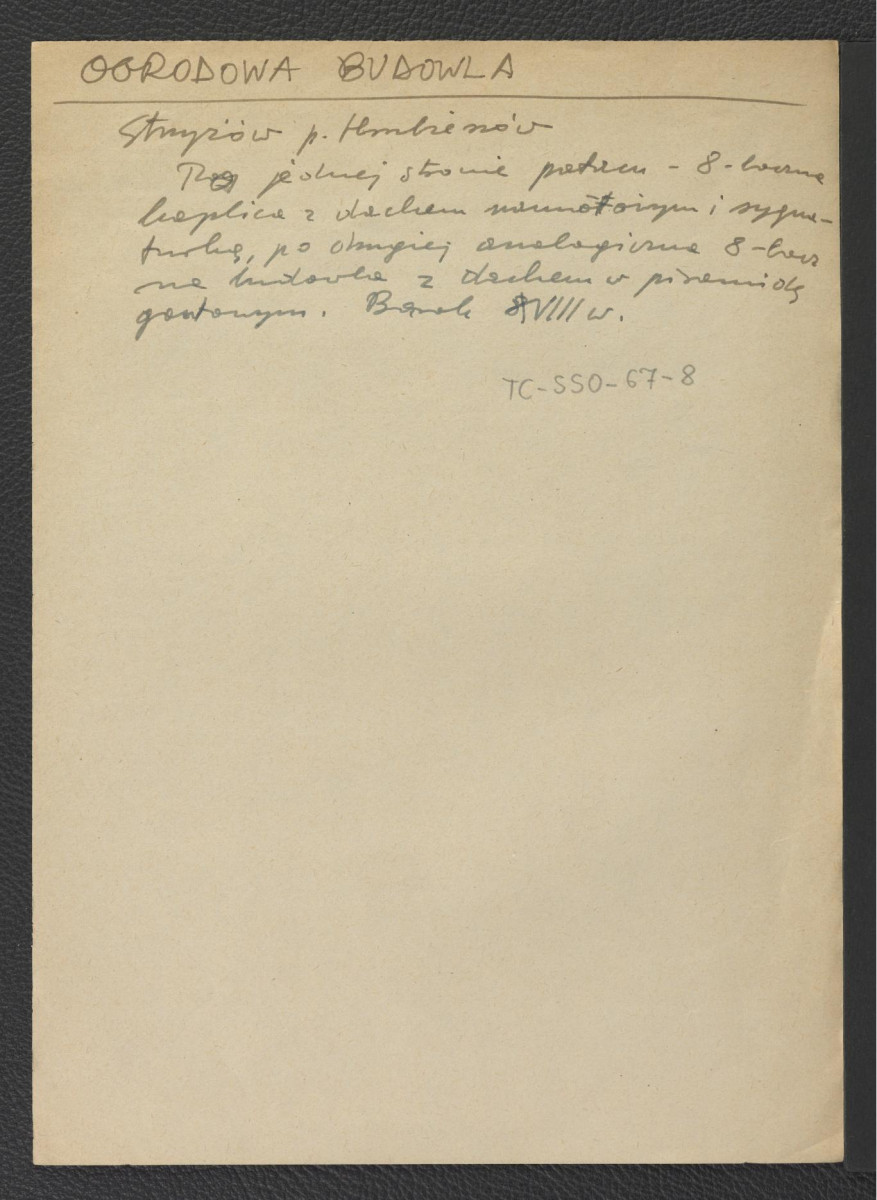 OGRODOWA BUDOWLA
Strzyżów p. Hrubieszów
Po jednej stronie pałacu - 8-boczna
kaplica z dachem namiotowym i sygna-
turką, po drugiej analogiczna 8-bocz
na budowla z dachem w piramidę
gontowym. Barok XVIII w.
TC-SSO-67-8